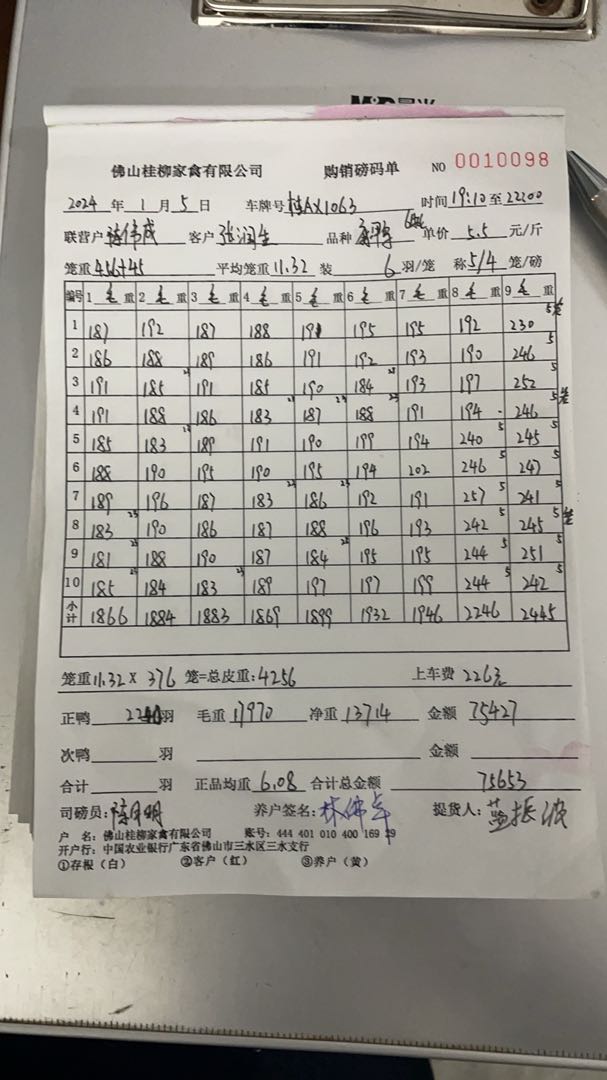 佛山桂柳家禽有限公司 购销磅码单 NO 0010098
2024 年 1 月 5 日 车牌号 时间 19:10 至 22:00
联营户 客户 品种 单价 5.5 元/斤
笼重 456+45 平均笼重 11.32 装 6 羽/笼 称 5/4 笼/磅
编号 1 毛 重 2 毛 重 3 毛 重 4 毛 重 5 毛 重 6 毛 重 7 毛 重 8 毛 重 9 毛 重
1 187 192 187 188 191 195 195 192 230 5
2 186 188 189 186 191 192 193 190 246 5
3 191 185 191 185 190 184 193 197 252 5
4 191 188 186 183 187 188 191 194 246 5
5 185 183 189 191 190 199 194 240 5 245 5
6 188 190 195 190 195 194 202 246 5 247 5
7 189 196 187 183 186 192 191 257 5 241 5
8 183 190 186 187 188 196 193 242 5 245 5
9 181 188 190 187 184 195 195 244 5 251 5
10 185 184 183 189 197 197 199 244 5 242 5
小计 1866 1884 1883 1869 1899 1932 1946 2246 2445
笼重 11.32 × 376 笼=总皮重: 4256 上车费 226元
正鸭 羽 毛重 17970 净重 13714 金额 75427
次鸭 羽 金额
合计 羽 正品均重 6.08 合计总金额 75653
司磅员: 养户签名: 提货人:
户 名: 佛山桂柳家禽有限公司 账号: 444 401 010 400 169 29
开户行: 中国农业银行广东省佛山市三水区三水支行
①存根(白) ②客户(红) ③养户(黄)